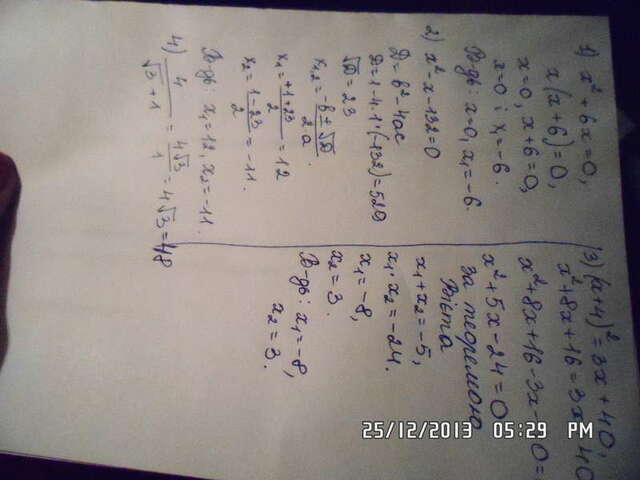 1) x²+6x=0,
x(x+6)=0,
x=0, x+6=0,
x=0 і x₁=-6.
В-дь: x=0, x₁=-6.
2) x²-x-132=0
D=b²-4ac
D=1-4·1·(-132)=529
√D=23
x₁,₂=(-b±√D)/2a
x₁=(+1+23)/2=12
x₂=(1-23)/2=-11.
В-дь: x₁=12, x₂=-11.
4) 4/(√3+1)=4√3/1=4√3=48
3) (x+4)²=3x+40,
x²+8x+16=3x+40
x²+8x+16-3x-40=
x²+5x-24=0
за теоремою
Вієта
x₁+x₂=-5,
x₁·x₂=-24.
x₁=-8,
x₂=3.
В-дь: x₁=-8,
x₂=3.
25/12/2013 05:29 PM